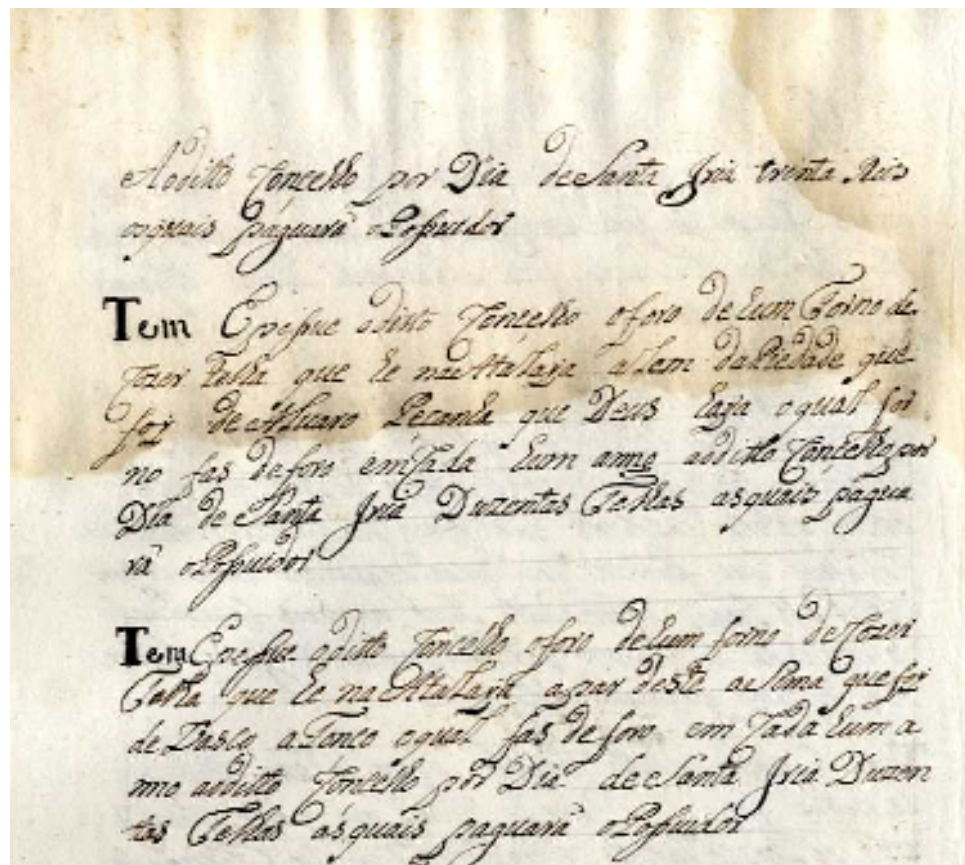 Aoditto Conçelho por Dia de Santa Iria trinta Reis
os quais paguara o Possuidor
Tem E possue o ditto Conçelho o foro de hum Forno de
Cozer Telha que he na Atalaya alem da Piedade que
foy de Alvaro Peçanha que Deus haja o qual for
no fas de foro em Cada hum anno aoditto Conçelho por
Dia de Santa Iria Duzentas Telhas as quais pagua
rá o Possuidor
Tem E possue o ditto Concelho o foro de hum forno de Cozer
Telha que he na Atalaya a par deste a Sima que foy
de Vasco o qual fas de foro em Cada hum a
nno aoditto Conçelho por Dia de Santa Iria Duzen
tas Telhas as quais paguará o Possuidor